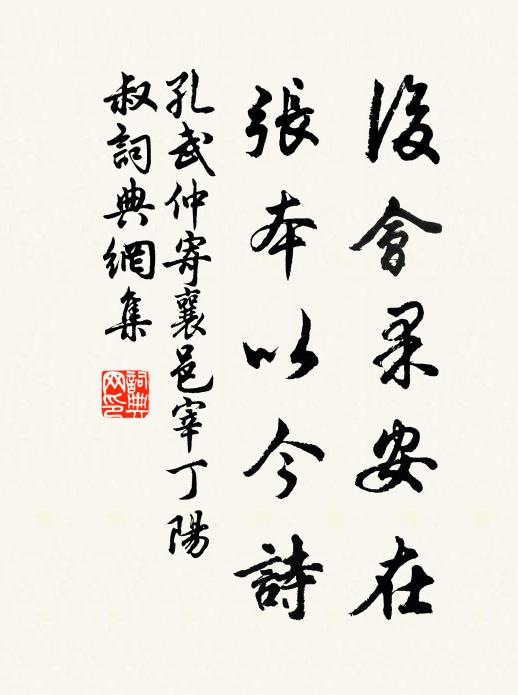 後會果安在
張本以今詩
孔武仲寄襄邑宰丁陽
叔詞典網集
詞典
网印